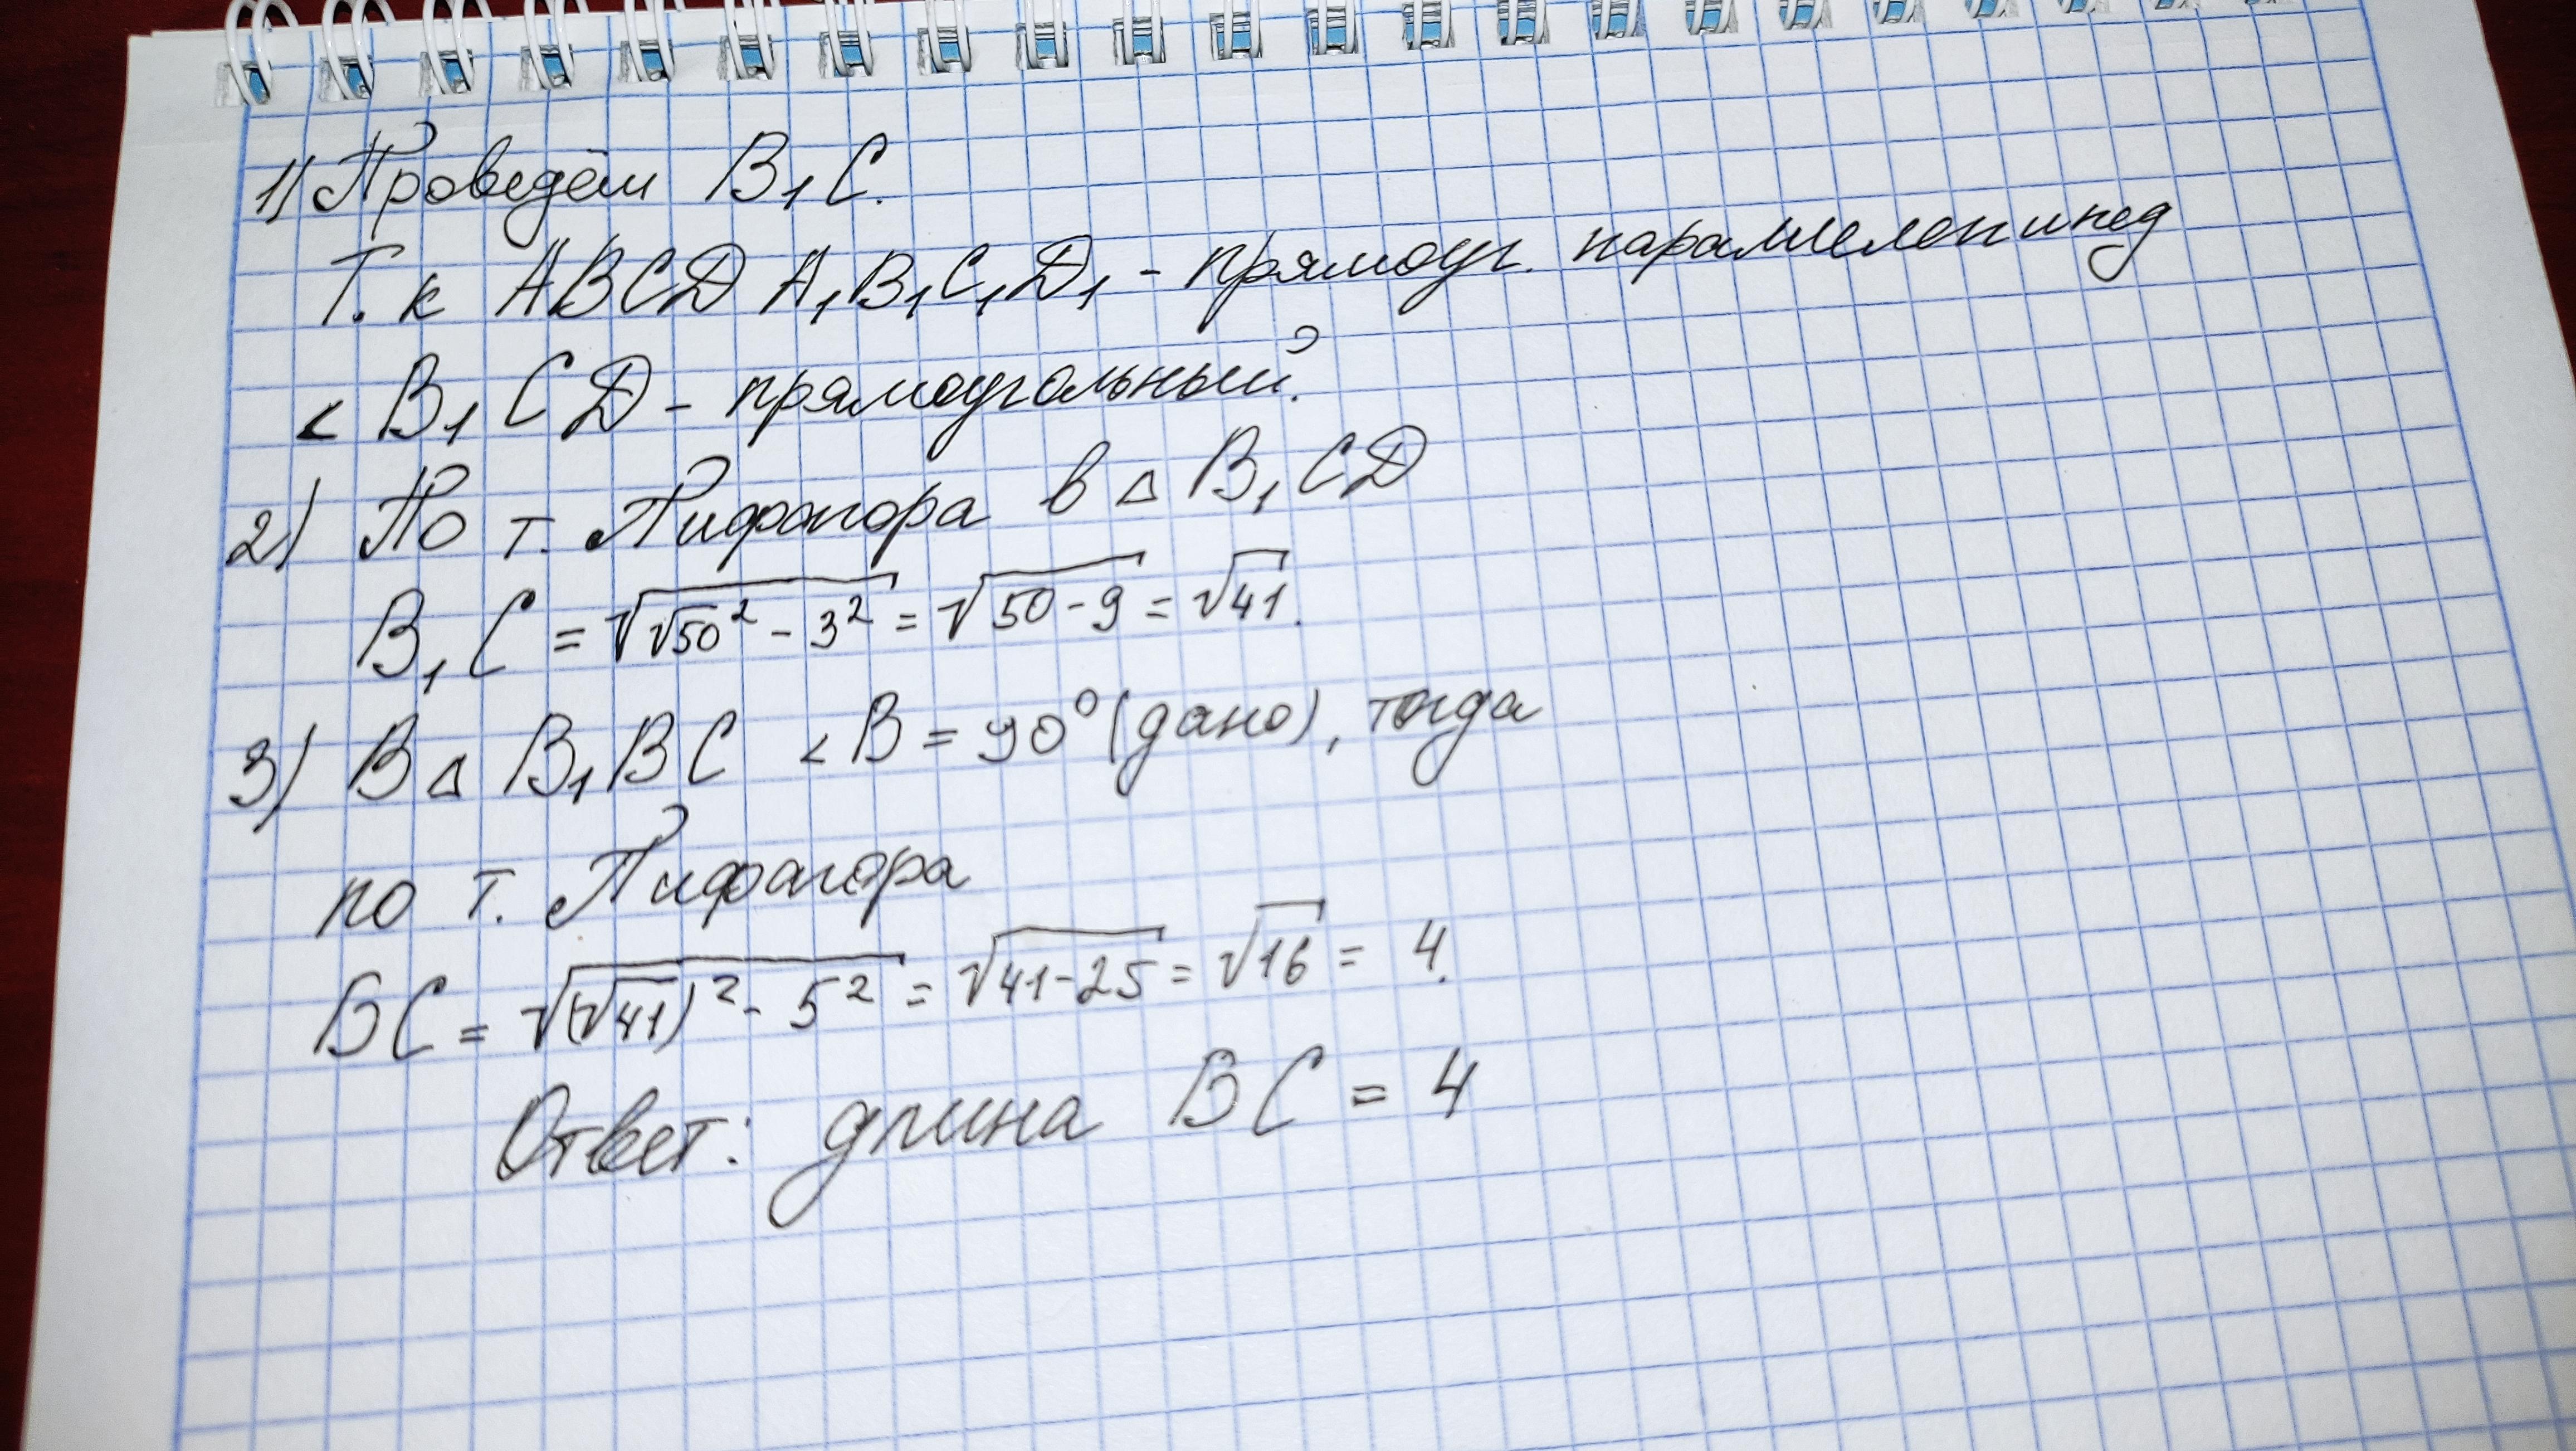 1) Проведём B₁C.
Т.к ABCD A₁B₁C₁D₁ - прямоуг. параллелепипед
∠ B₁CD - прямоугольный.
2) По т. Пифагора в △ B₁CD
B₁C = √(√50² - 3²) = √(50 - 9) = √41.
3) В △ B₁BC ∠B = 90° (дано), тогда
по т. Пифагора
BC = √((√41)² - 5²) = √(41 - 25) = √16 = 4.
Ответ: длина BC = 4